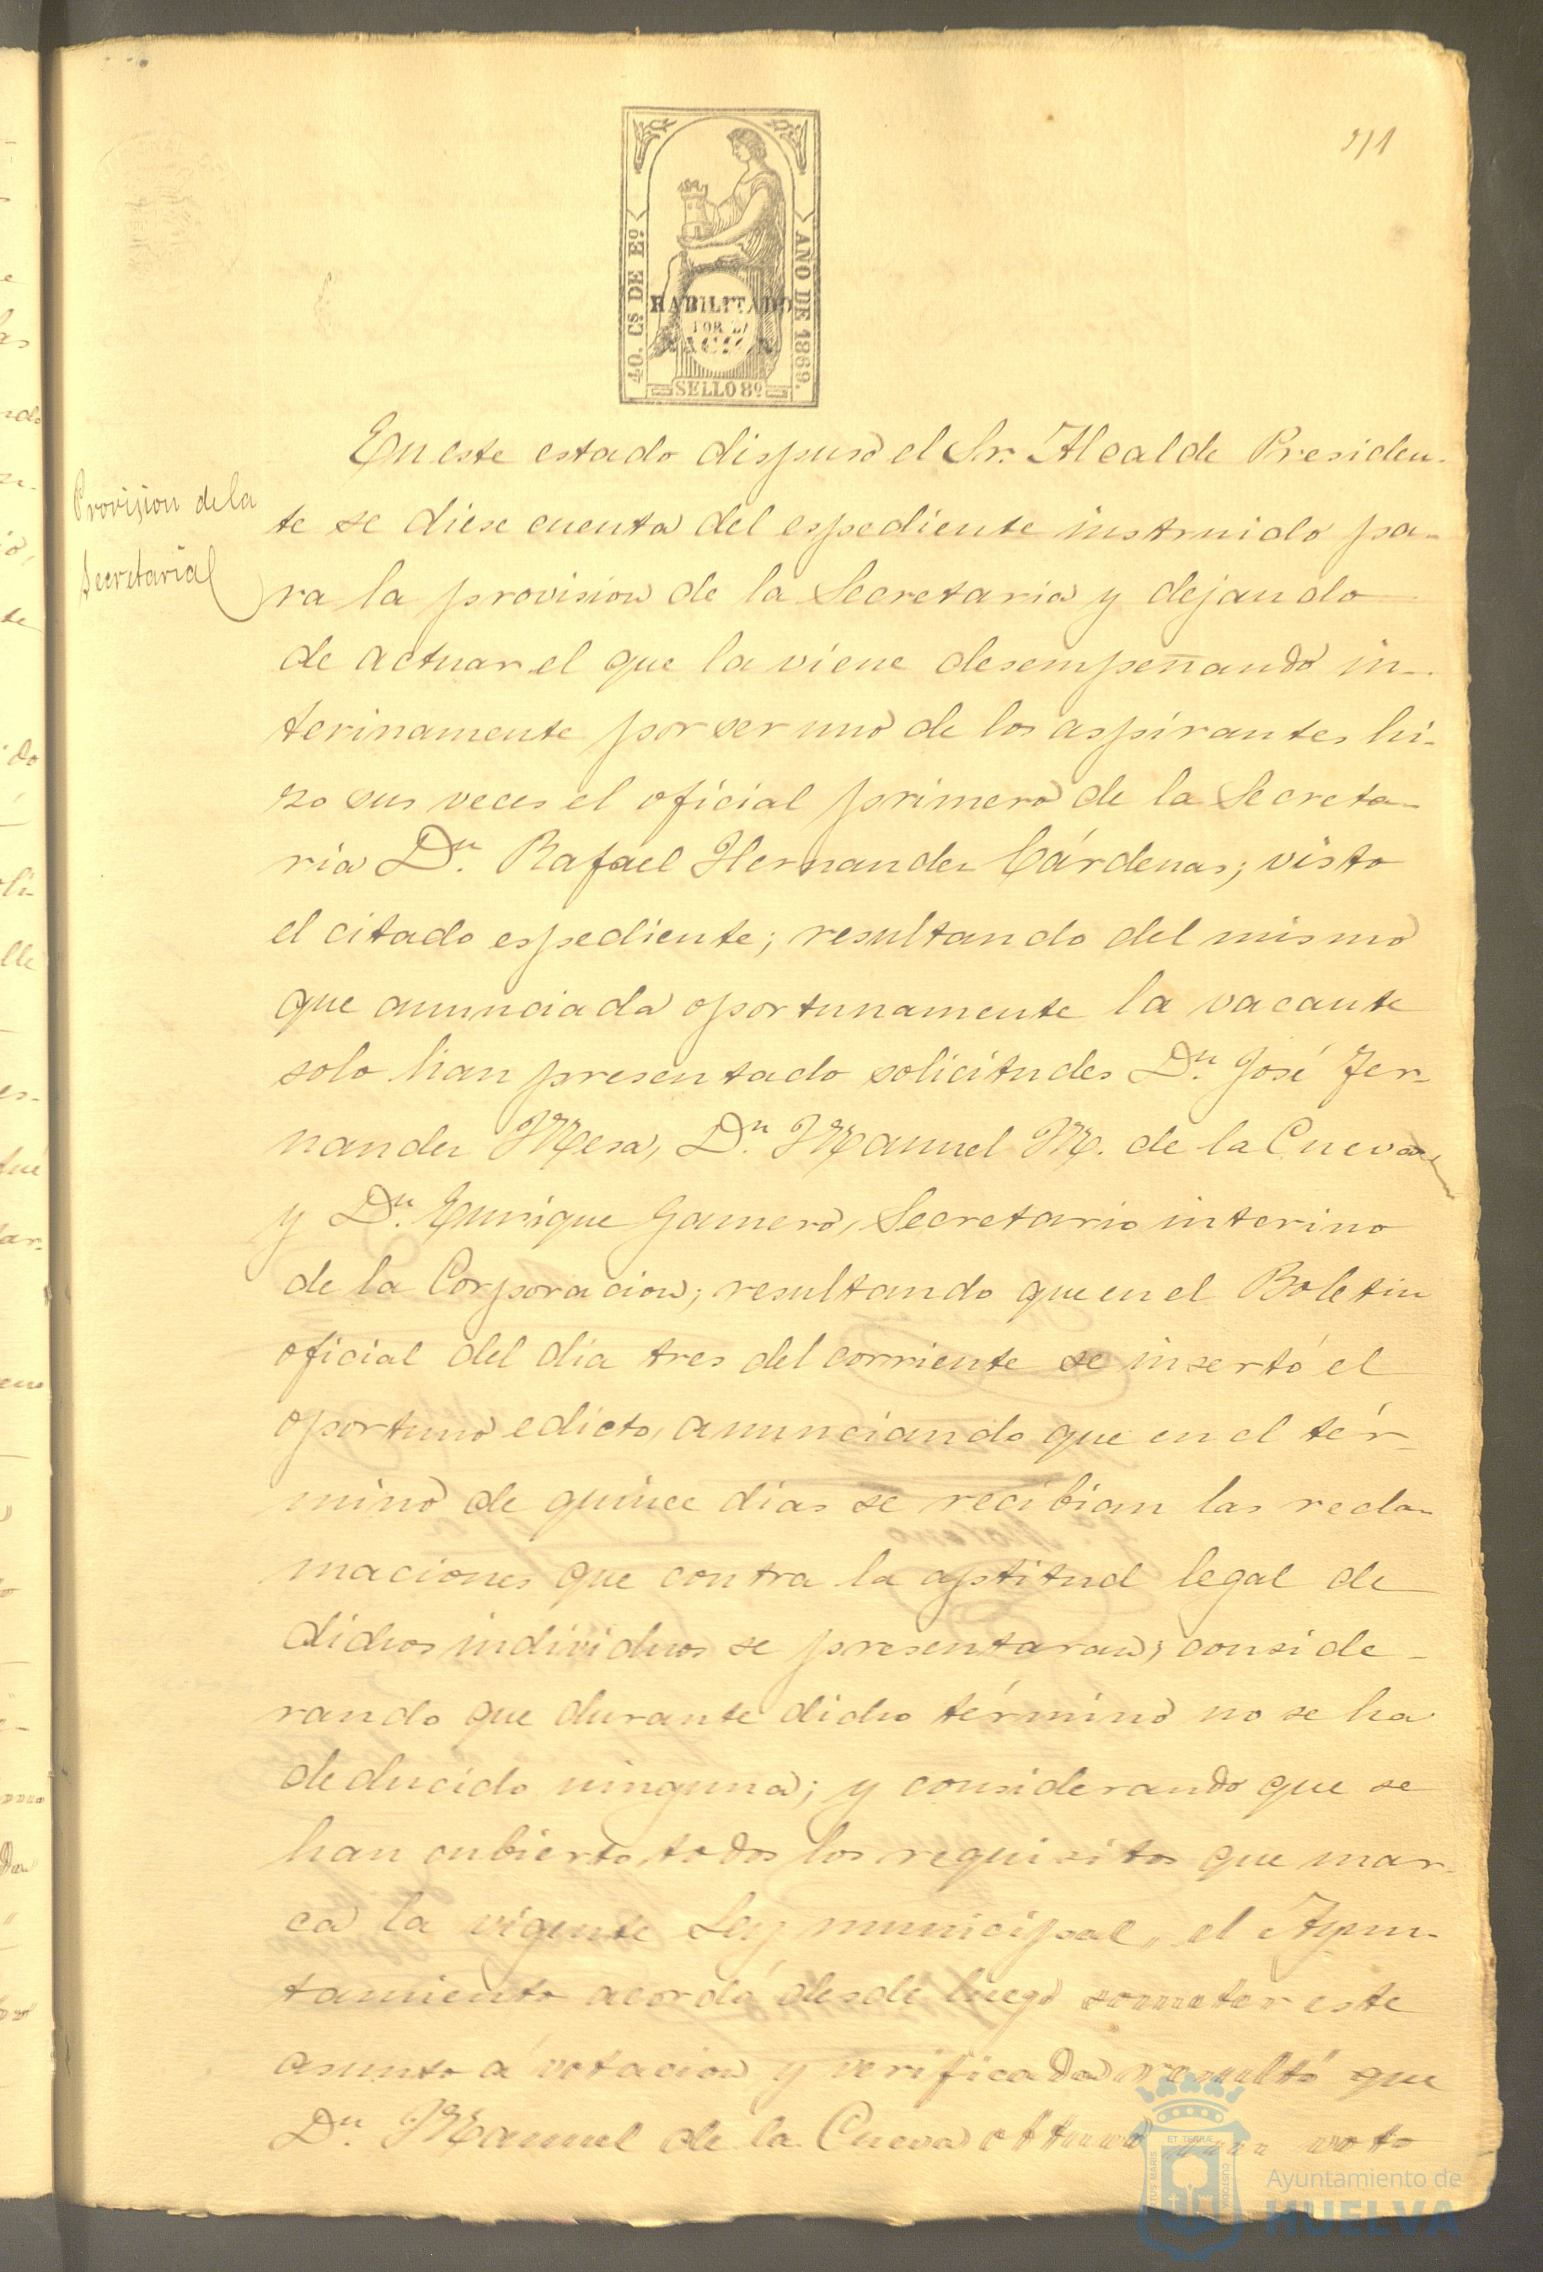 211
40. Cs. DE Eo.
AÑO DE 1869.
HABILITADO
POR LA
NACION
SELLO 8º
Provision de la
Secretaria
En este estado dispuso el Sr. Alcalde Presiden-
te se diese cuenta del espediente instruido pa-
ra la provision de la Secretaria y dejando
de actuar el que la viene desempeñando in-
terinamente por ser uno de los aspirantes hi-
zo sus veces el oficial primero de la Secreta-
ria Dn. Rafael Hernandez Cárdenas; visto
el citado espediente; resultando del mismo
que anunciada oportunamente la vacante
solo han presentado solicitudes Dn. José Fer-
nandez Mesa, Dn. Manuel M. de la Cueva
y Dn. Enrique Gamero, Secretario interino
de la Corporacion; resultando que en el Boletin
oficial del dia tres del corriente se insertó el
oportuno edicto, anunciando que en el tér-
mino de quince dias se recibian las recla-
maciones que contra la aptitud legal de
dichos individuos se presentaran; conside-
rando que durante dicho término no se ha
deducido ninguna; y considerando que se
han cubierto todos los requisitos que mar-
ca la vigente Ley municipal, el Ayun-
tamiento acordó desde luego someter este
asunto á votacion y verificada resultó que
Dn. Manuel de la Cueva obtuvo un voto
Ayuntamiento de
HUELVA